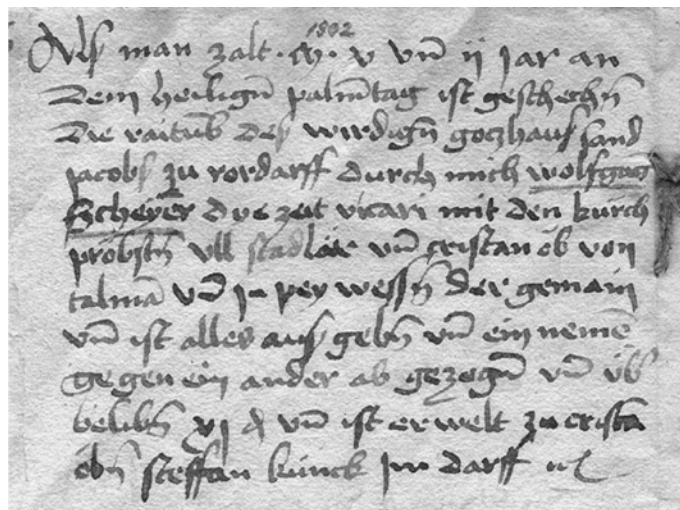 1502
Als man zalt · xv · v vn̄ ij Jar an
Dem heilign̄ palm̄tag ist geschechn̄
Die raitūb des wirdign̄ goczhaus sand
jacobs zu rordarff durch mich wolfgag
Scheyer dye zeit vicari mit den kirch
pröbstn̄ vll stadlär vn̄ cristan öb von
talmā vn̄ in pey wessn̄ der gemain
vn̄ ist alles aus gebn̄ vn̄ ein nemē
gegen ein ander ab gezogn̄ vn̄ üb
belibn̄ xj vn̄ ist erwelt zu cristā
öbn̄ steffan künck im darff